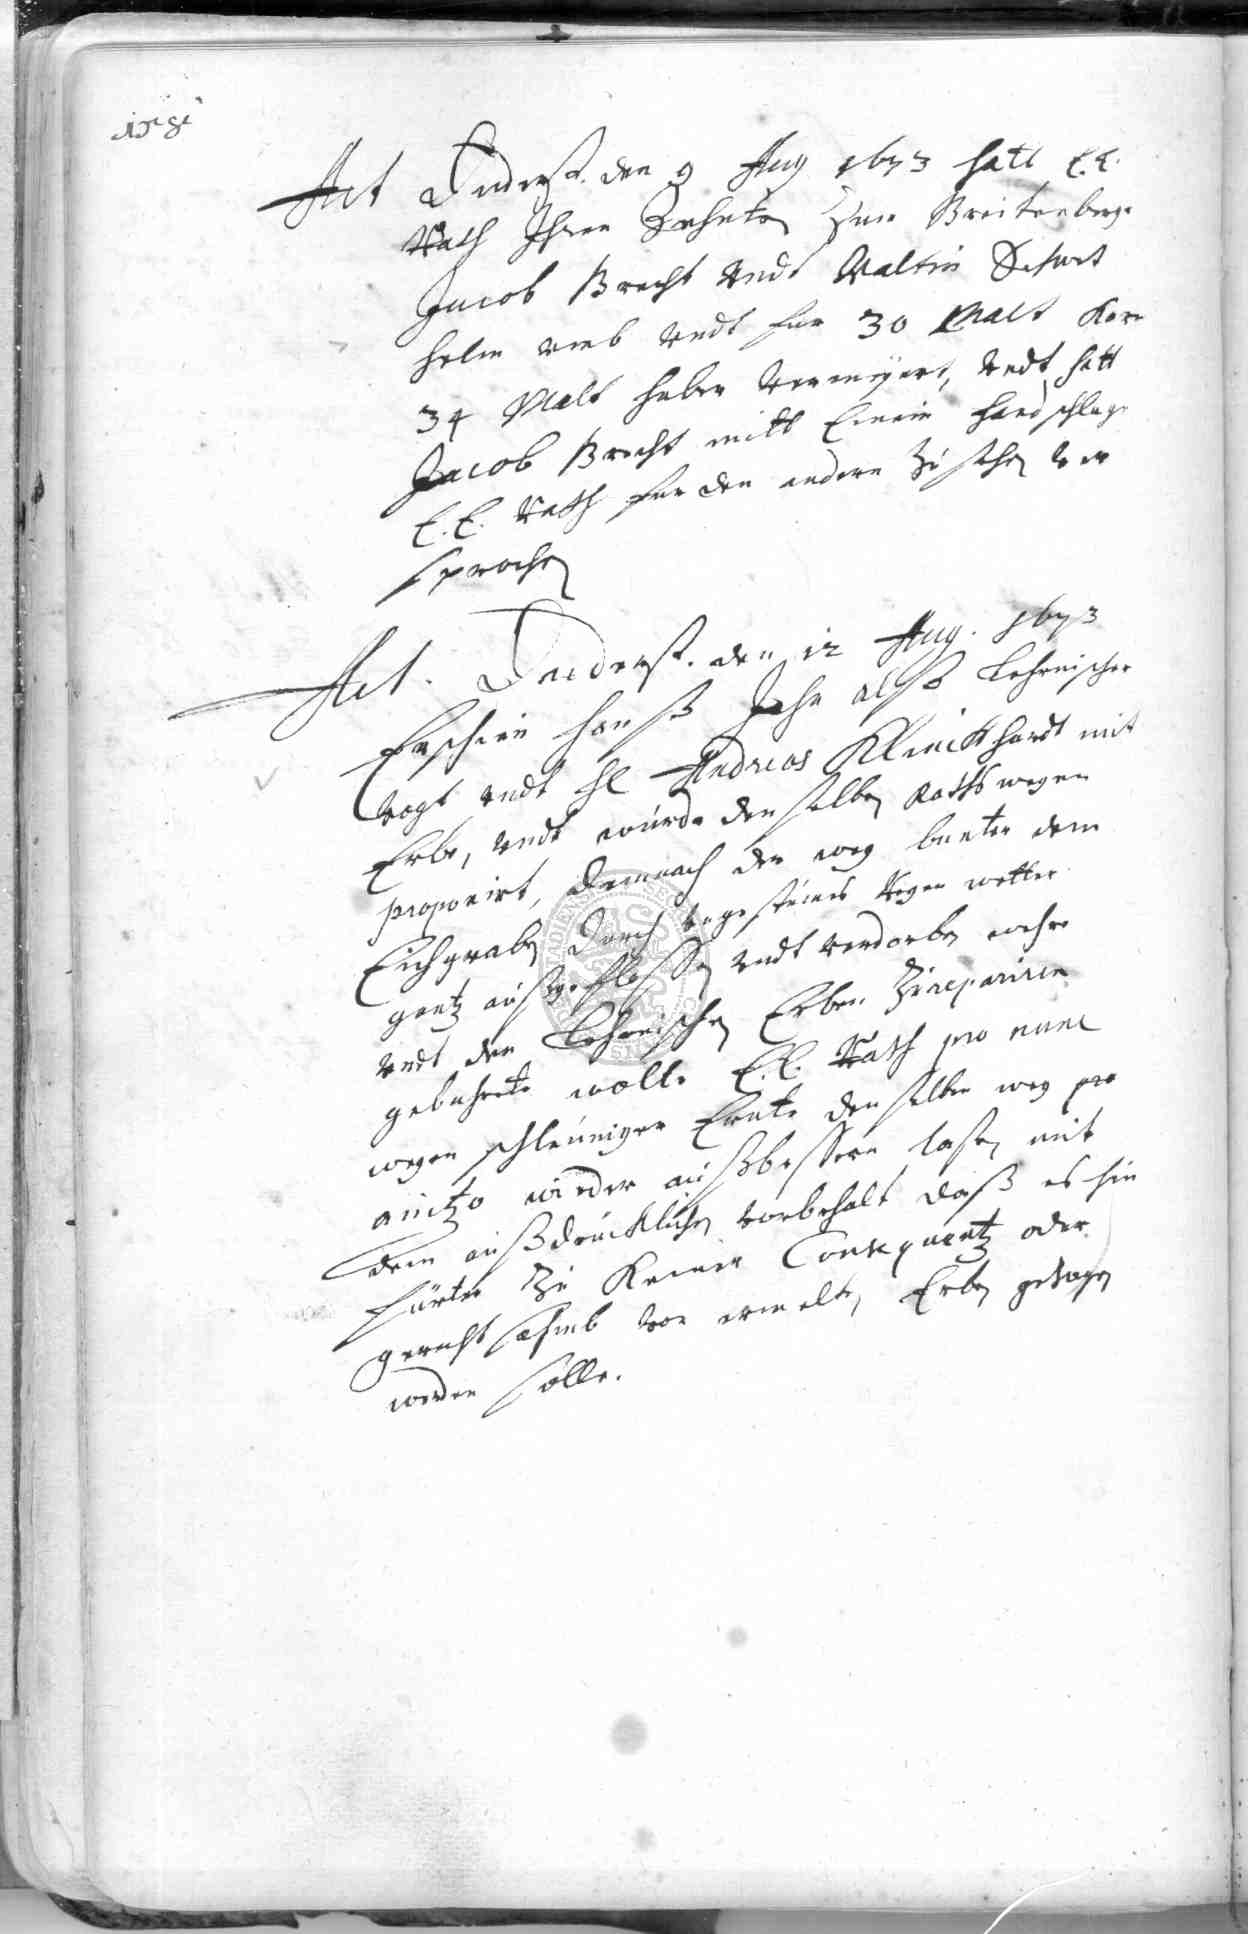 Act Duderst. den 9 Aug 1673 hatt E. E.
Rath Ihren Zehnten Zum Breitenberge
Jacob Brecht Undt Valtin
umb Undt fur 30 Malt Korn
34 Malt haber Vermeyert, Undt hatt
Jacob Brecht mitt Einem handschlage
E. E. Rath fur den andern Zu stehen Ver
sprochen
Act. Duderst. den 12 Aug. 1673
Erschien Hanß Jahn alß Lehnischer
Vogt Undt Andreas Klinckhardt mit
Erbe, Undt wurde denselben Raths wegen
proponirt, demnach der weg hunter dem
Eichgraben durch Ungestümes Regen wetter
gantz außgeflossen Undt Verdorben wehre
Undt den Lehnischen Erben Zu repariren
gebuhrete wolle E. E. Rath pro nunc
wegen schleuniger Ernte denselben weg pro
anitzo wieder außbessern lasen mit
dem außdrücklichen Vorbehalt daß es hin
fürter Zu Keiner Consequentz oder
gerechtsahmb Von ermelten Erben gezogen
werden solle.